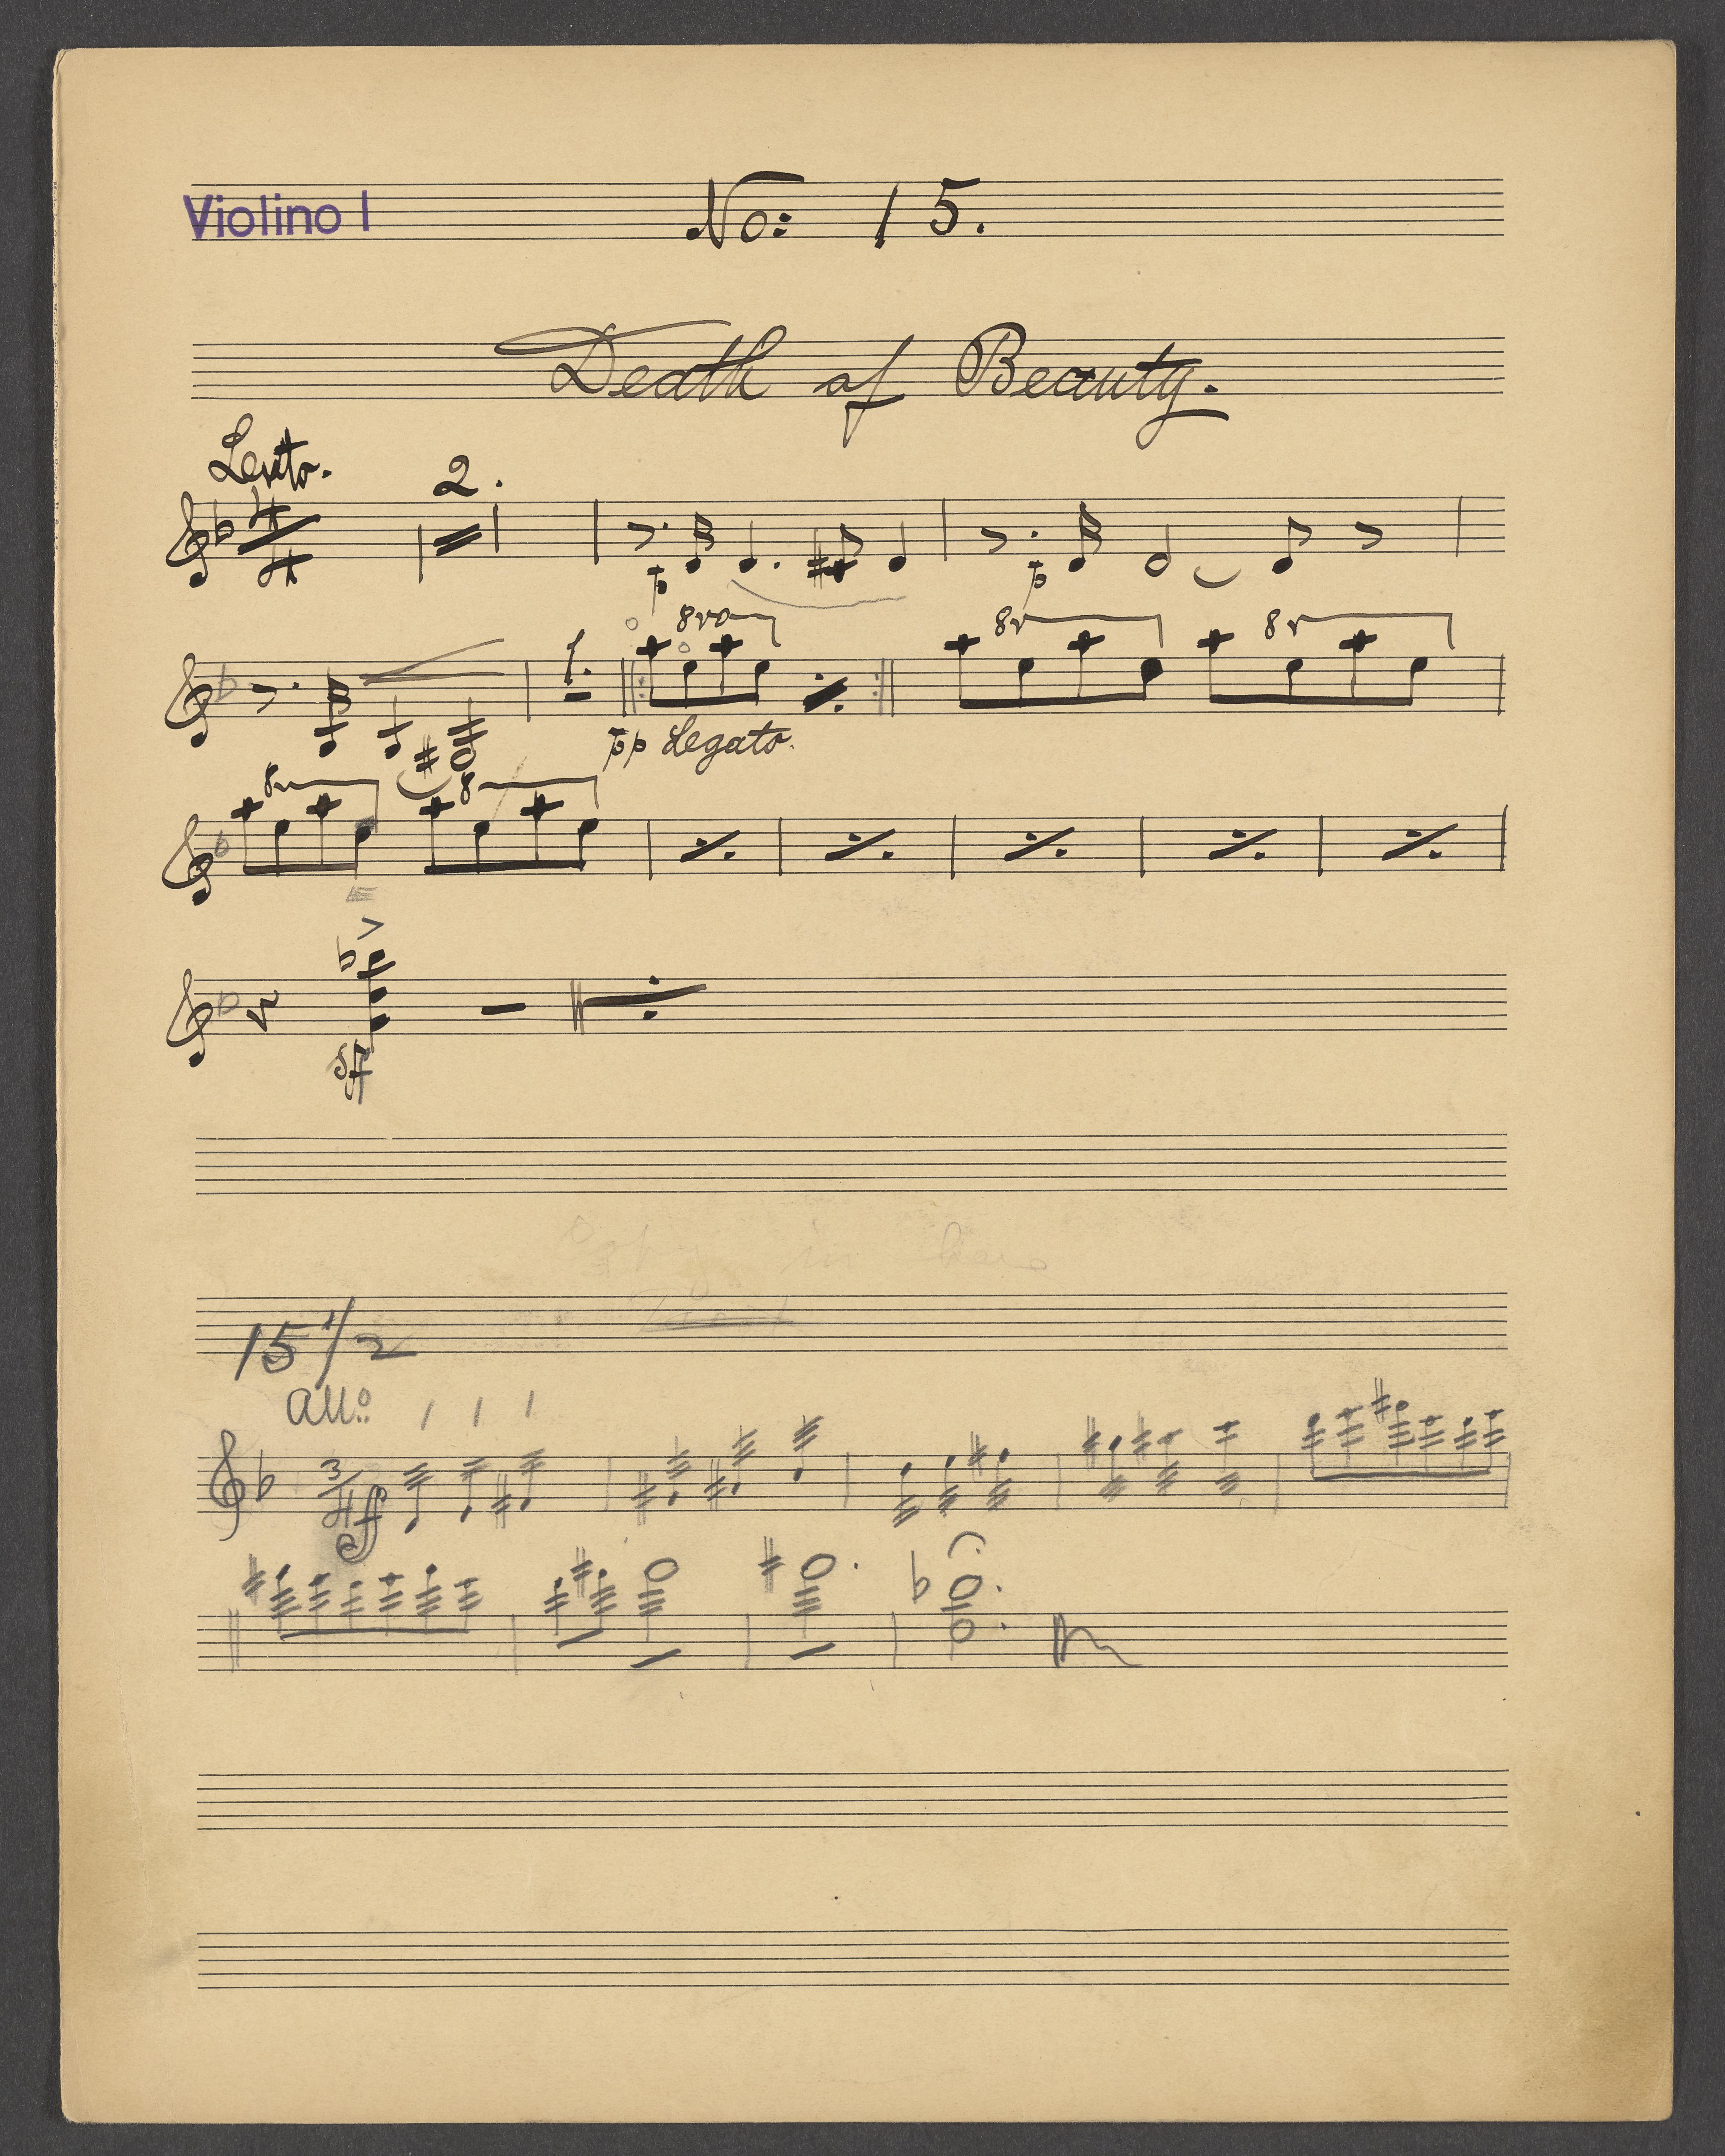 Violino I
No: 15.
Death of Beauty.
Lento.
2.
4
4
p
p
8va
1.
8v
8v
pp Legato.
8v
8
sf
in
15 1/2
All:o 1 1 1
3/4 ff